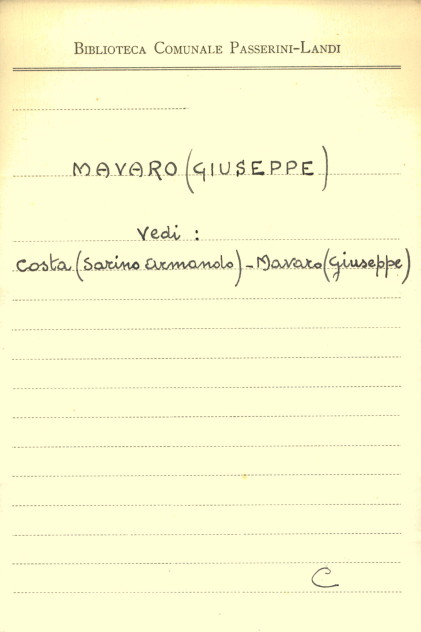 BIBLIOTECA COMUNALE PASSERINI-LANDI
MAVARO (GIUSEPPE)
Vedi :
Costa (Sarino Armando) - Mavaro (Giuseppe)
C